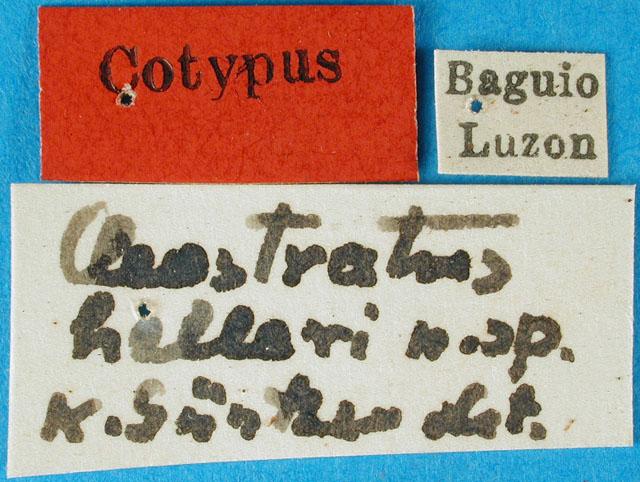 Cotypus
Baguio
Luzon
helleri n.sp.
K. Günther det.